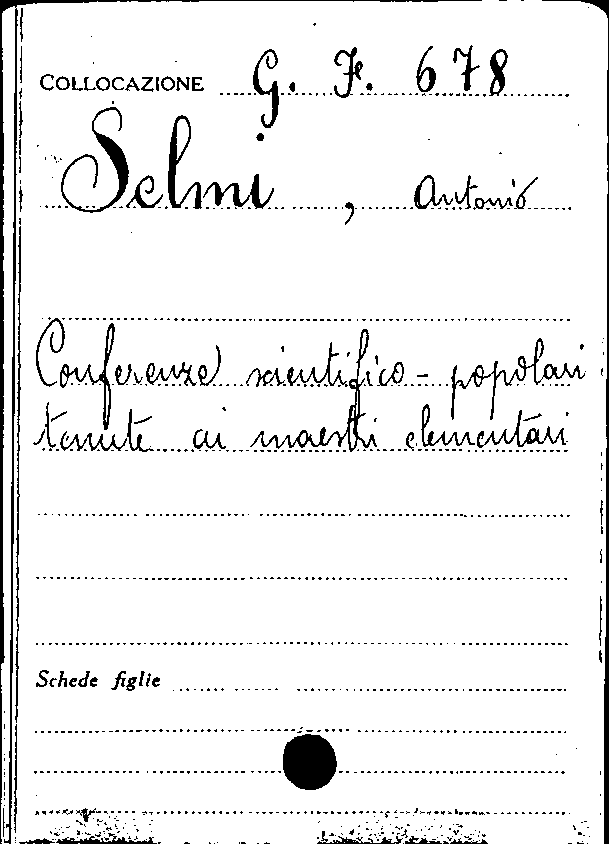 COLLOCAZIONE G. F. 678
Selmi, Antonio
Conferenze scientifico - popolari
tenute ai maestri elementari
Schede figlie